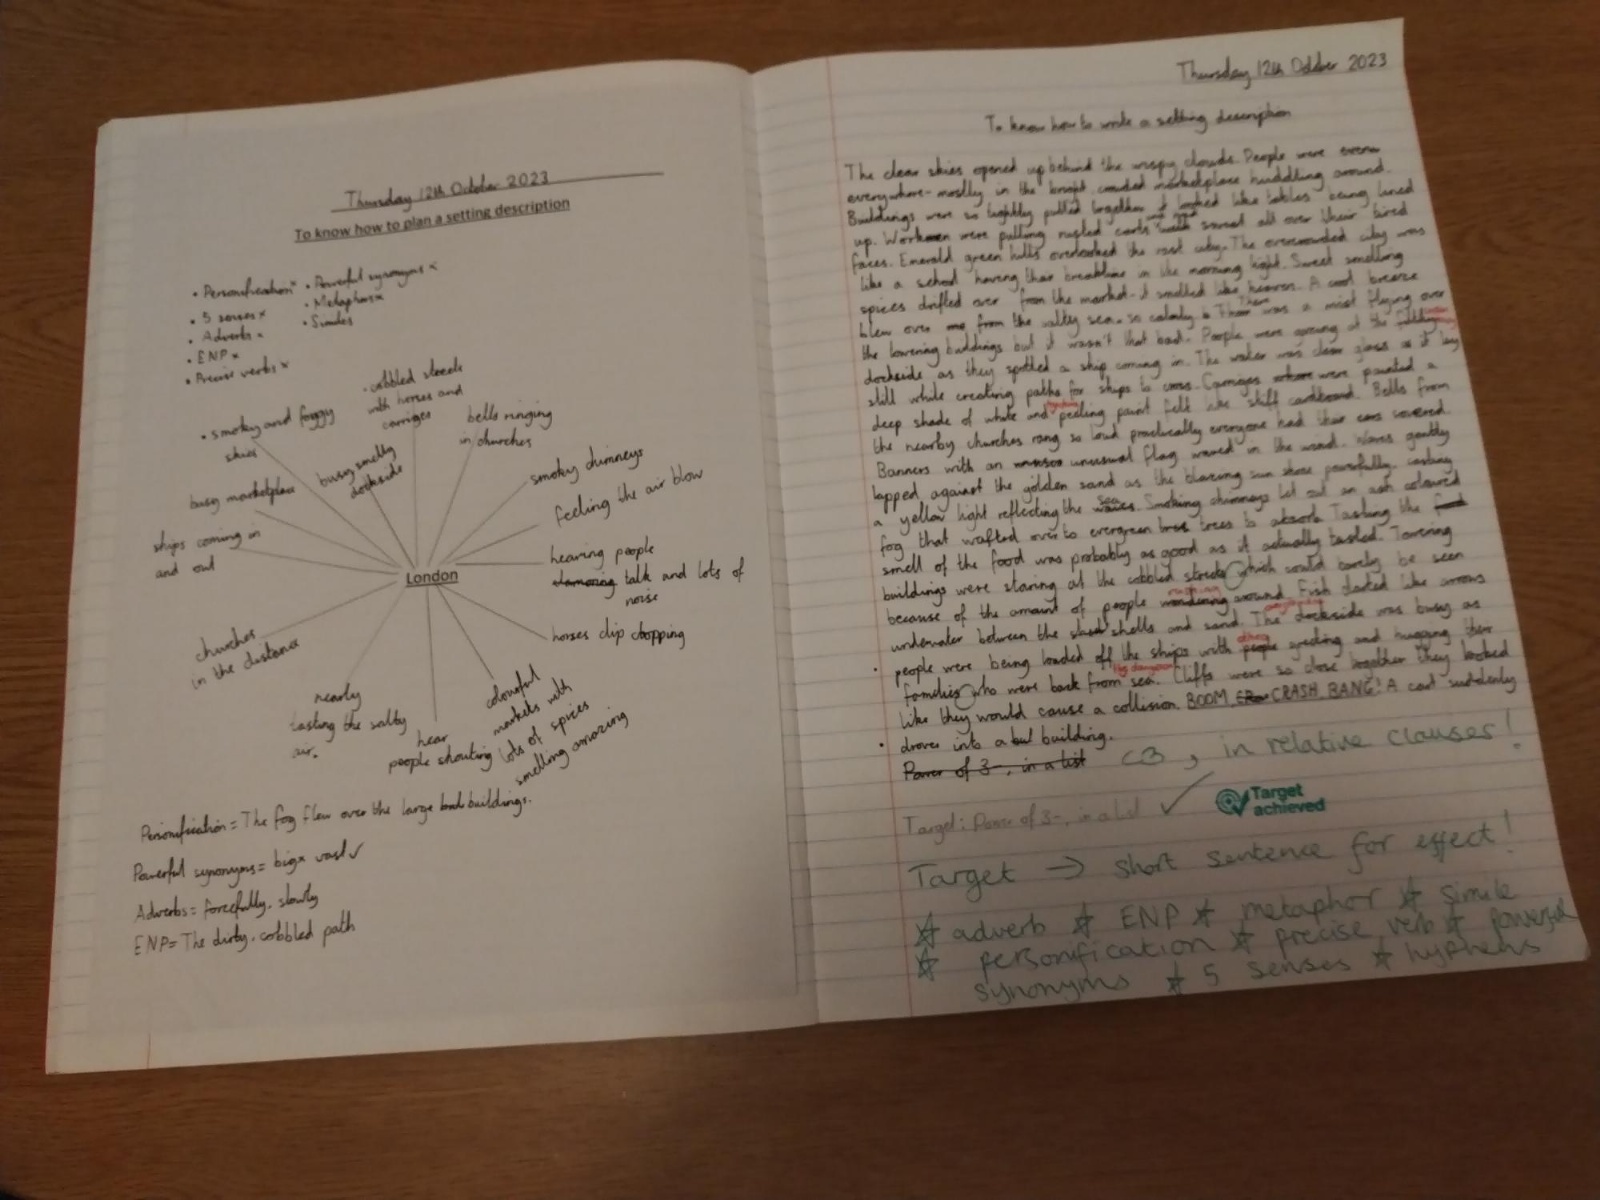 Thursday 12th October 2023
To know how to plan a setting description
• Personification x • Powerful synonyms x
• 5 senses x • Metaphors x
• Adverbs x • Similes
• ENP x
• Precise verbs x
• smoky and foggy
skies
• cobbled streets
with horses and
carriges
bells ringing
in churches
busy smelly
dockside
smoky chimneys
busy marketplace
feeling the air blow
ships coming in
and out
hearing people
talk and lots of
noise
London
horses clip clopping
churches
in the distance
nearly
tasting the salty
air.
hear
people shouting
colourful
markets with
lots of spices
smelling amazing
Personification = The fog flew over the large buildings.
Powerful synonyms = big x vast ✓
Adverbs = forcefully, slowly
ENP = The dirty, cobbled path
Thursday 12th October 2023
To know how to write a setting description
The clear skies opened up behind the wispy clouds. People were
everywhere - mostly in the bright, crowded marketplace huddling around.
Buildings were so tightly pulled together it looked like tables being lined
up. Workmen were pulling rusted carts with spread all over their tired
faces. Emerald green hills overlooked the vast city. The overcrowded city was
like a school having their breaktime in the morning light. Sweet smelling
spices drifted over from the market - it smelled like heaven. A cool breeze
blew over me from the salty sea so calmly. There was a mist flying over
the towering buildings but it wasn't that bad. People were at the
dockside as they spotted a ship coming in. The water was clear glass as it lay
still while creating paths for ships to cross. Carriges were painted a
deep shade of white and peeling paint felt like stiff cardboard. Bells from
the nearby churches rang so loud practically everyone had their ears covered.
Banners with an unusual flag waved in the wind. Waves gently
lapped against the golden sand as the blazing sun shone powerfully, casting
a yellow light reflecting the sea. Smoking chimneys let out an ash coloured
fog that wafted over to evergreen trees to absorb. Tasting the
smell of the food was probably as good as it actually tasted. Towering
buildings were staring at the cobbled streets which could barely be seen
because of the amount of people rushing around. Fish darted like arrows
underwater between the shells and sand. The dockside was busy as
• people were being loaded off the ships with other people greeting and hugging their
families who were back from sea. Cliffs were so close together they looked
like they would cause a collision. BOOM CRASH BANG! A cart suddenly
• drove into a building.
Power of 3 -, in a list
C3, in relative clauses!
Target: Power of 3 -, in a list ✓
Target
achieved
Target → short sentence for effect!
☆ adverb ☆ ENP ☆ metaphor ☆ simile
☆ personification ☆ precise verb ☆ powerful
synonyms ☆ 5 senses ☆ hyphens